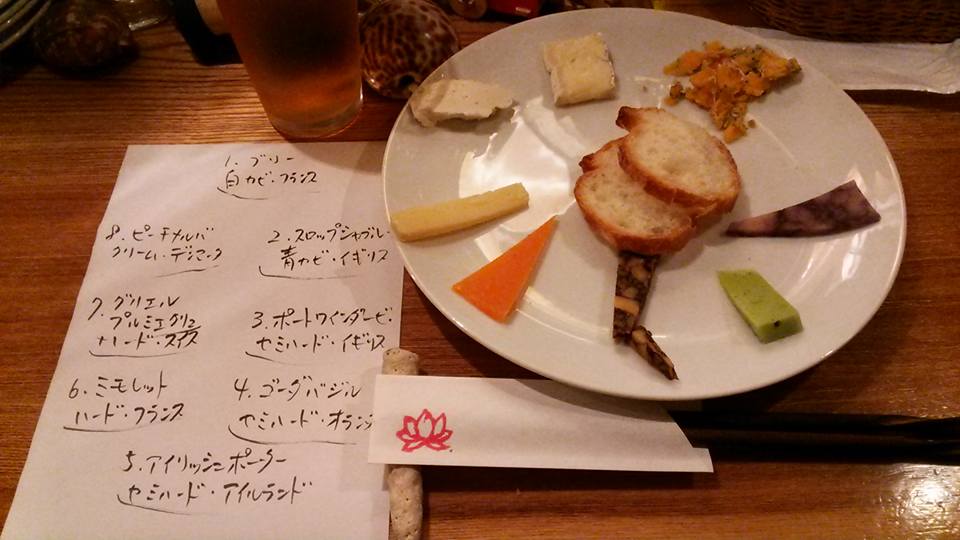 1. ブリー
白カビ・フランス
8. ピーチメルバ
クリーム・デンマーク
2. スロップシャブルー
青カビ・イギリス
7. グリエル
プルミエグリュ
ハード・スイス
3. ポートワインダービー
セミハード・イギリス
6. ミモレット
ハード・フランス
4. ゴーダバジル
セミハード・オランダ
5. アイリッシュポーター
セミハード・アイルランド